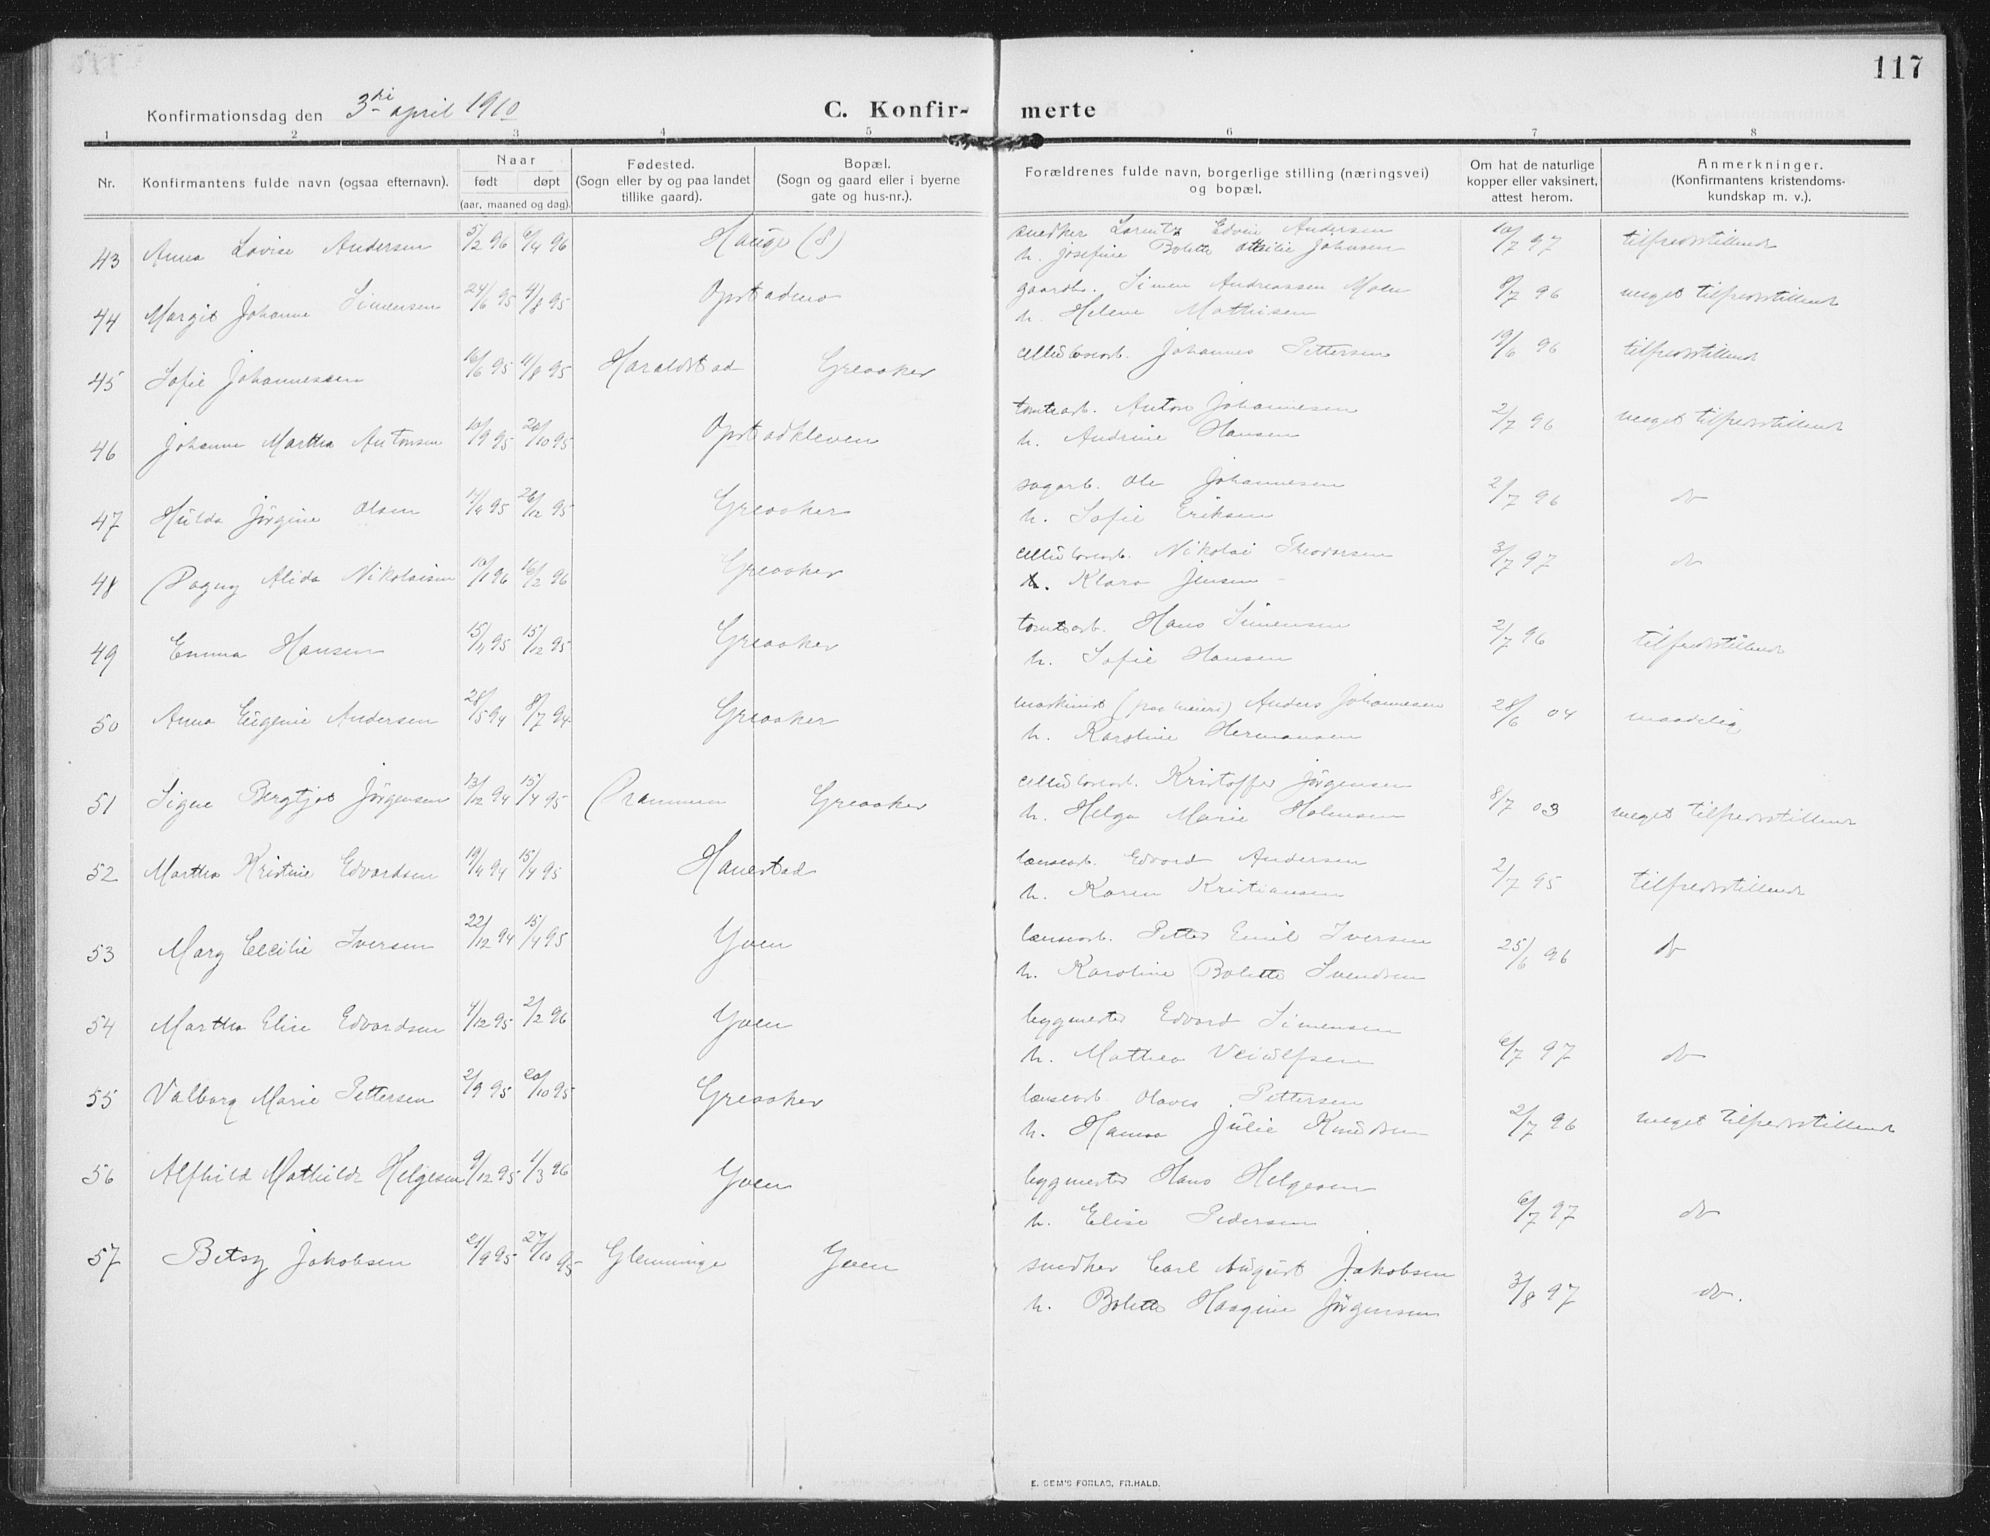 117
Konfirmationsdag den 3di april 1910
C. Konfir- merte
1 2 3 4 5 6 7 8
Nr.
Konfirmantens fulde navn (ogsaa efternavn).
Naar
født døpt
(aar, maaned og dag).
Fødested.
(Sogn eller by og paa landet
tillike gaard).
Bopæl.
(Sogn og gaard eller i byerne
gate og hus-nr.).
Forældrenes fulde navn, borgerlige stilling (næringsvei)
og bopæl.
Om hat de naturlige
kopper eller vaksinert,
attest herom.
Anmerkninger.
(Konfirmantens kristendoms-
kundskap m. v.).
43 Anna Lovise Andersen 5/2 96 6/4 96 Hauge (8) snedker Lorentz Edvin Andersen 10/7 97 tilfredsstillende
h. Josefine Bolette Ottilie Johnsen
44 Margit Johanne Simensen 24/6 95 4/8 95 Opstadmo gaardb. Simen Andreassen Moen 8/7 96 meget tilfredsstillende
h. Helene Mathisen
45 Sofie Johannessen 16/6 95 11/8 95 Haraldstad Greaaker cellulosearb. Johannes Pettersen 19/6 96 tilfredsstillende
46 Johanne Martha Antonsen 10/9 95 20/10 95 Opstadkleven tomtearb. Anton Johannesen 2/7 96 meget tilfredsstillende
h. Andrine Hansen
47 Hulda Jørgine Olsen 14/4 95 26/12 95 Greaaker sagarb. Ole Johannesen 2/7 96 do
h. Sofie Eriksen
48 Dagny Alida Nikolaisen 10/1 96 16/2 96 Greaaker cellulosearb. Nikolai Theodorsen 3/7 97 do
h. Klara Jensen
49 Emma Hansen 15/4 95 15/12 95 Greaaker tomtearb. Hans Simensen 2/7 96 tilfredsstillende
h. Sofie Hansen
50 Anna Eugenie Andersen 28/5 94 8/7 94 Greaaker maskinist (paa meieri) Anders Johannesen 28/6 04 maadelig
h. Karoline Hermansen
51 Signe Bergtjot Jørgensen 13/12 94 15/4 95 Drammen Greaaker cellulosearb. Kristoffer Jørgensen 8/7 03 meget tilfredsstillende
h. Helga Marie Halvorsen
52 Martha Kristine Edvardsen 19/4 94 15/4 95 Hanestad lænsearb. Edvard Andersen 2/7 95 tilfredsstillende
h. Karen Kristiansen
53 Mary Cecilie Iversen 22/12 94 15/4 95 Yven lænsearb. Petter Emil Iversen 25/6 96 do
h. Karoline Bolette Svendsen
54 Martha Elise Edvardsen 4/12 95 2/2 96 Yven bygmester Edvard Simensen 6/7 97 do
h. Mathea Veiulfsen
55 Valborg Marie Pettersen 2/9 95 20/10 95 Greaaker lænsearb. Olaves Pettersen 2/7 96 meget tilfredsstillende
h. Hanna Julie Knudsen
56 Alfhild Mathilde Helgesen 9/12 95 1/3 96 Yven bygmester Hans Helgesen 6/7 97 do
h. Elise Pedersen
57 Betsy Jakobsen 21/9 95 27/10 95 Glemminge Yven snedker Carl August Jakobsen 3/8 97 do.
h. Bolette Haagine Jørgensen
E. SEM'S FORLAG, FR.HALD.